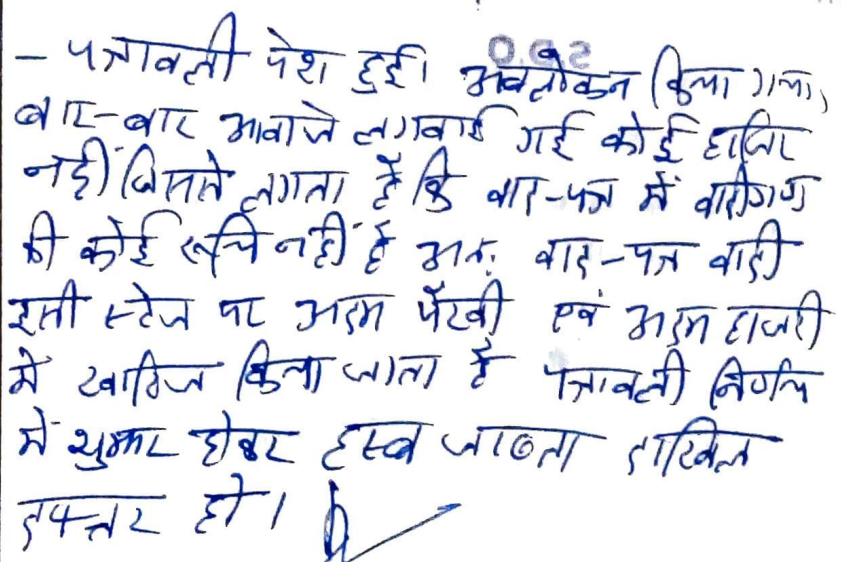 - पत्रावली पेश हुई। अवलोकन किया गया,
बार-बार आवाजे लगवाई गई कोई हाजिर
नहीं जिससे लगता है कि वाद-पत्र में वादीगण
की कोई रूचि नहीं है अतः वाद-पत्र वादी
इसी स्टेज पर अदम पैरवी एवं अदम हाजरी
में खारिज किया जाता है पत्रावली निर्णय
में शुमार होकर हस्ब जाब्ता दाखिल
दफ्तर हो।